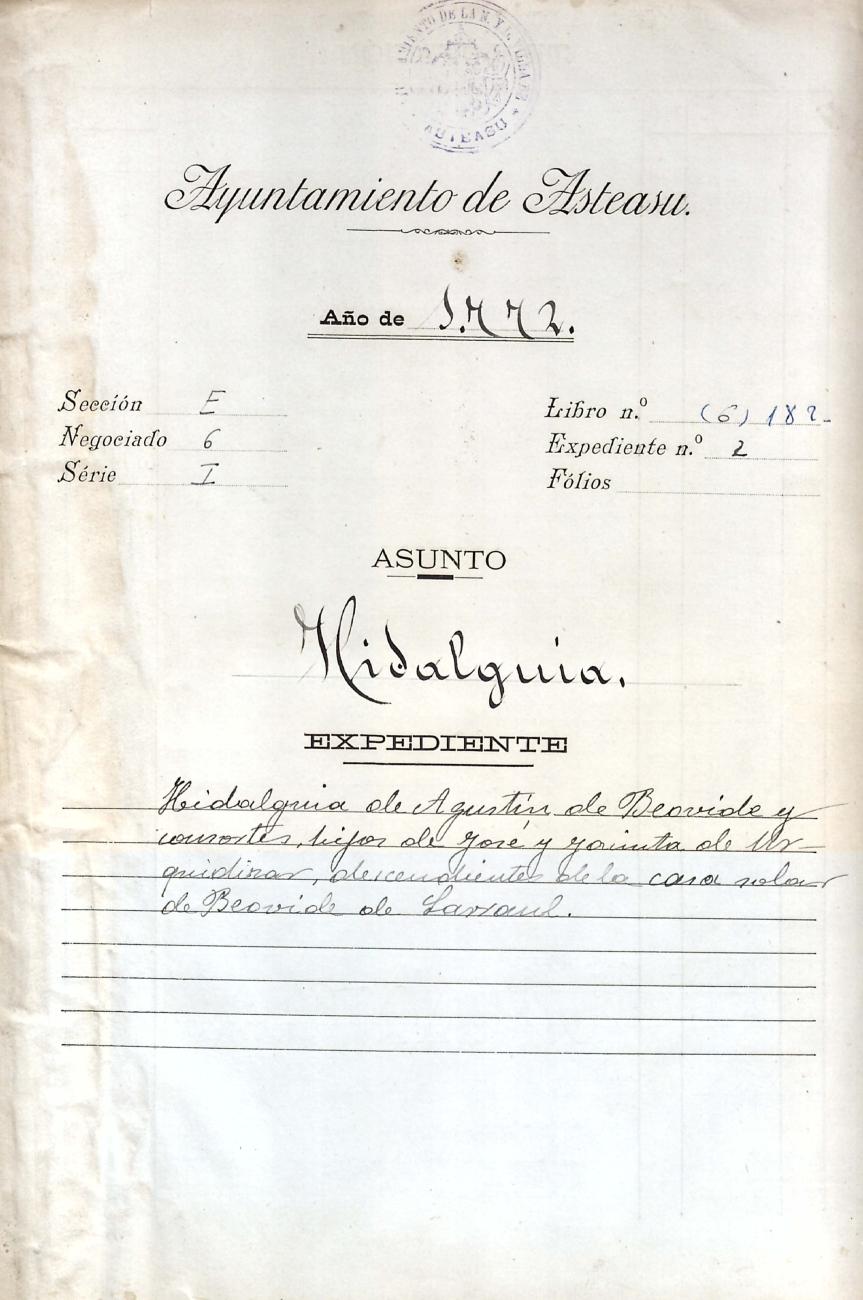 AYUNTAMIENTO DE LA N. Y L. VILLA DE
* ASTEASU *
Ayuntamiento de Asteasu.
Año de 1.772.
Sección E
Negociado 6
Série I
Libro n.º (6) 182.
Expediente n.º 2
Fólios
ASUNTO
Hidalguia.
EXPEDIENTE
Hidalguia de Agustín de Beovide y
consortes, hijos de José y Jacinta de Ur-
quidizar, descendientes de la casa solar
de Beovide de Larraul.